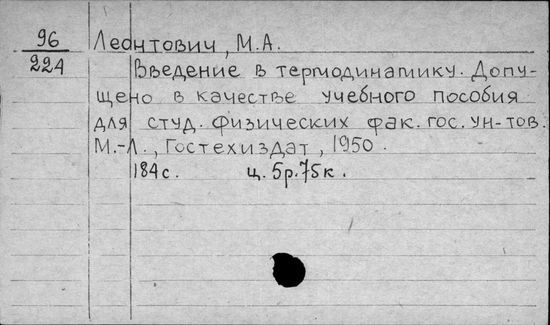 96 Леонтович, М.А.
224 Введение в термодинамику. Допу-
щено в качестве учебного пособия
для студ. физических фак. гос. ун-тов.
М.-Л., Гостехиздат, 1950.
184с. ц. 5р.75к.